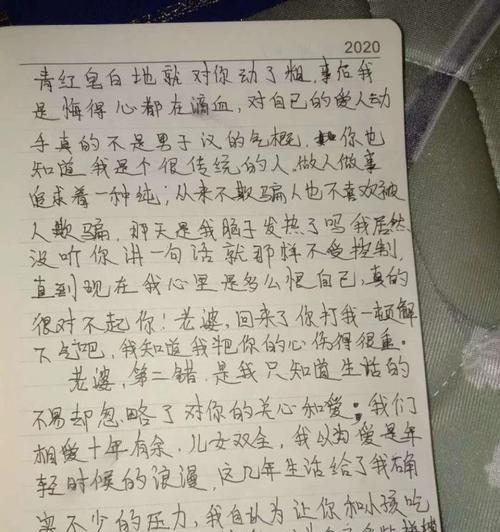 2020
青红皂白地就对你动了粗,事后我
是悔得心都在滴血,对自己的爱人动
手真的不是男子汉的气概,你也
知道我是个很传统的人。做人做事
追求着一种纯;从来不欺骗人也不喜欢被
人欺骗,那天是我脑子发热了吗我居然
没听你讲一句话就那样不受控制,
直到现在我心里是多么恨自己,真的
很对不起你!老婆,回来了你打我一顿解
下气吧,我知道我把你的心伤得很重。
老婆,第二错,是我只知道生活的
不易却忽略了对你的关心和爱;我们
相爱十年有余,儿女双全,我以为爱是年
轻时候的浪漫,这几年生活给了我确
实不少的压力,我自认为让你和小孩吃